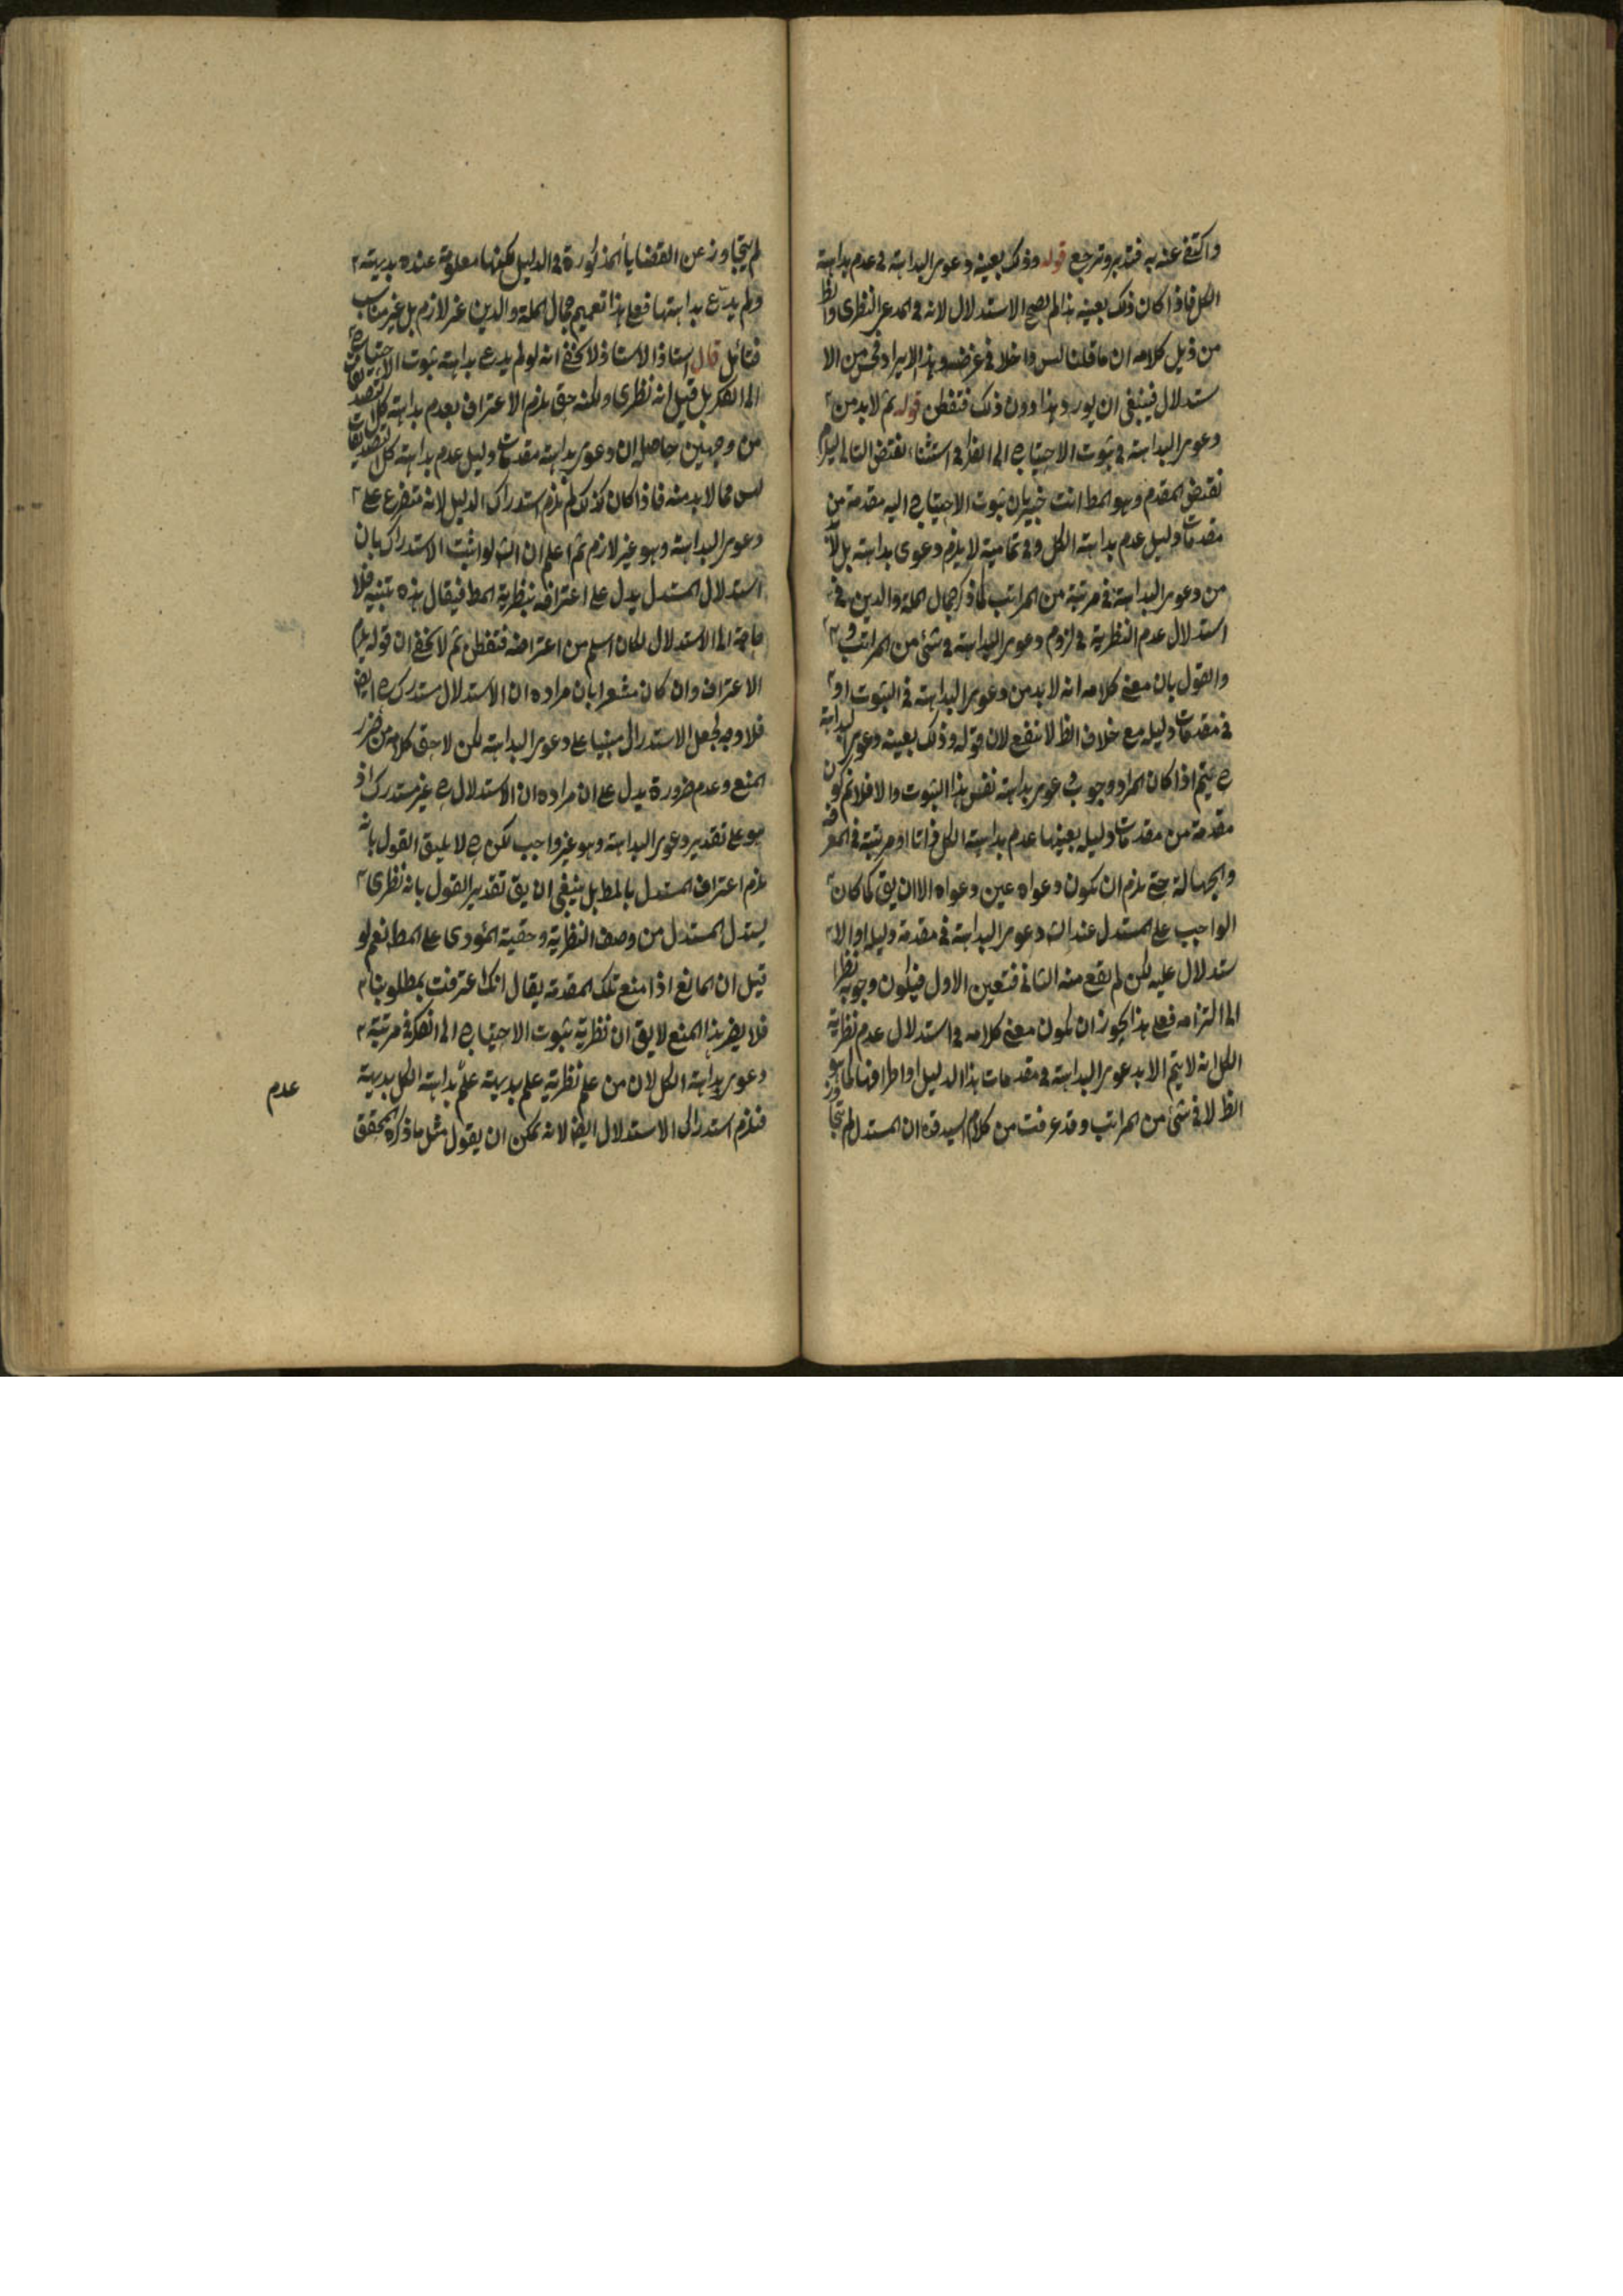 واكتفى عنه به فتدبر وترجع قوله وذلك بعينه دعوى البداهة فى عدم بداهة
الكل فاذا كان ذلك بعينه هذا لم يصح الاستدلال لانه فى المدعى النظرى والظ
من ذيل كلامه ان ما قلنا ليس داخلا فى غرضه وهذا الايراد من الا
ستدلال فينبغى ان يورد هذا دون ذلك فتفطن قوله ثم لا بد من
دعوى البداهة فى ثبوت الاحتياج الى النظر فى استثناء نقيض التالى
نقيض المقدم وهو المط انت خبير بان ثبوت الاحتياج اليه مقدمة من
مقدمات دليل عدم بداهة الكل وفى تماميته لا يلزم دعوى بداهته بل لا
من دعوى البداهة فى مرتبة من المراتب كما ذكر جمال الملة والدين فى
استدلال عدم النظرية فى لزوم دعوى البداهة فى شئ من المراتب
والقول بان معنى كلامه انه لا بد من دعوى البداهة فى الثبوت او
فى مقدمات دليله مع خلاف الظ لا ينفع لان قوله وذلك بعينه دعوى البداهة
ح يتم اذا كان المراد وجوب دعوى بداهة نفس هذا الثبوت والا فلا نم كون
مقدمة من مقدمات دليله بعينها عدم بداهة الكل ذاتا او مرتبة فى المعرفة
والجهالة حتى يلزم ان يكون دعواه عين دعواه الا ان يق كما كان
الواجب على المستدل عند الش دعوى البداهة فى مقدمة دليله او الا
ستدلال عليه لكن لم يقع منه الثانى فتعين الاول فيكون وجوبه نظرا
الى التزامه فعلى هذا يجوز ان يكون معنى كلامه فى استدلال عدم نظرية
الكل انه لا يتم الا بدعوى البداهة فى مقدمات هذا الدليل او اطرافها كما هو
الظ لا فى شئ من المراتب وقد عرفت من كلام السيد قده ان المستدل لم يتجاوز
لم يتجاوز عن القضايا المذكورة فى الدليل بكونها معلومة عنده بديهية
ولم يدع بداهتها فعلى هذا تعميم جمال الملة والدين غير لازم بل غير مناسب
فتأمل قال استاذ الاستاذ لا يخفى انه لو لم يدع بداهة ثبوت الاحتياج
الى الفكر بل قيل انه نظرى ولكنه حق يلزم الاعتراف بعدم بداهة كل التصديقات
من وجهين حاصله ان دعوى بداهة مقدمات دليل عدم بداهة كل التصديقات
ليس مما لا بد منه فاذا كان كذلك لم يلزم استدراك الدليل لانه متفرع على
دعوى البداهة وهو غير لازم ثم اعلم ان الش لو اثبت الاستدراك بان
استدلال المستدل يدل على اعترافه بنظرية المط فيقال هذه تنبيه فلا
حاجة الى الاستدلال لكان اسلم من اعتراضه فتفطن ثم لا يخفى ان قوله يلزم
الاعتراف وان كان مشعرا بان مراده ان الاستدلال مستدرك ح ايض
فلا وجه لجعل الاستدراك مبنيا على دعوى البداهة لكن لاحق كلامه من ضرر
المنع وعدم ضروره يدل على ان مراده ان الاستدلال ح غير مستدرك اذ
هو على تقدير دعوى البداهة وهو غير واجب لكن ح لا يليق القول بانه
يلزم اعتراف المستدل بالمط بل ينبغى ان يق تقدير القول بانه نظرى
يستدل المستدل من وصف النظرية وحقية المؤدى على المط نعم لو
قيل ان المانع اذا منع تلك المقدمة يقال انك اعترفت بمطلوبنا
فلا يضر هذا المنع لا يق ان نظرية ثبوت الاحتياج الى الفكر فى مرتبة
دعوى بداهة الكل لان من علم نظرية علم بديهة علم بداهة الكل بديهة
فيلزم استدراك الاستدلال ايض لانه يمكن ان يقول مثل ما ذكره المحقق
عدم